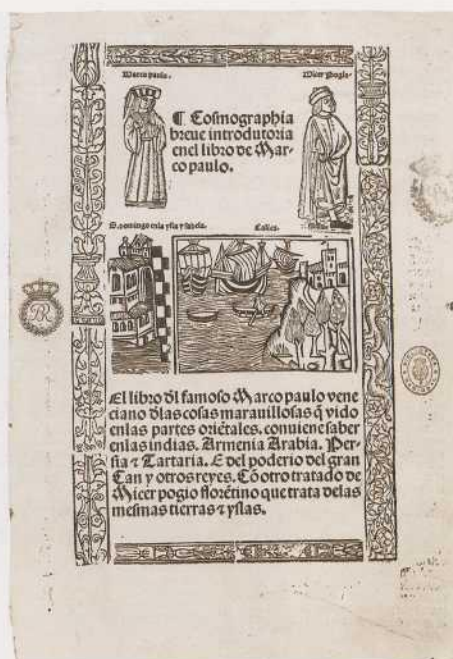 Marco paulo.
Micer Pogio.
¶ Cosmographia
breue introdutoria
enel libro de Mar-
co paulo.
S. domingo enla ysla ysabela.
Calicu.
El libro dl famoso Marco paulo vene
ciano dlas cosas marauillosas q̄ vido
enlas partes oriētales. conuiene saber
enlas indias. Armenia Arabia. Per-
sia ⁊ Tartaria. E del poderio del gran
Can y otros reyes. Cō otro tratado de
Micer pogio florētino que trata delas
mesmas tierras ⁊ yslas.